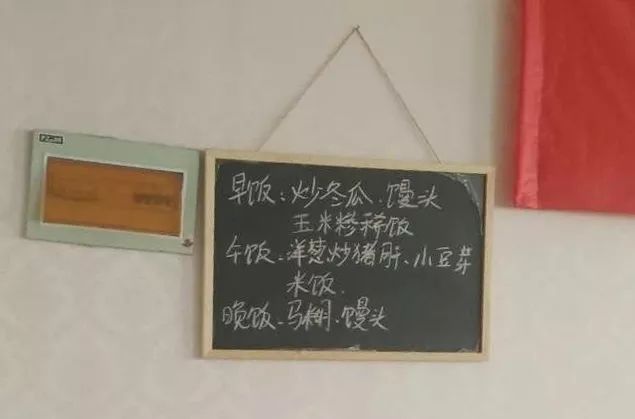 早饭：炒冬瓜、馒头
玉米糁稀饭
午饭：洋葱炒猪肝、小豆芽
米饭.
晚饭：马糊、馒头